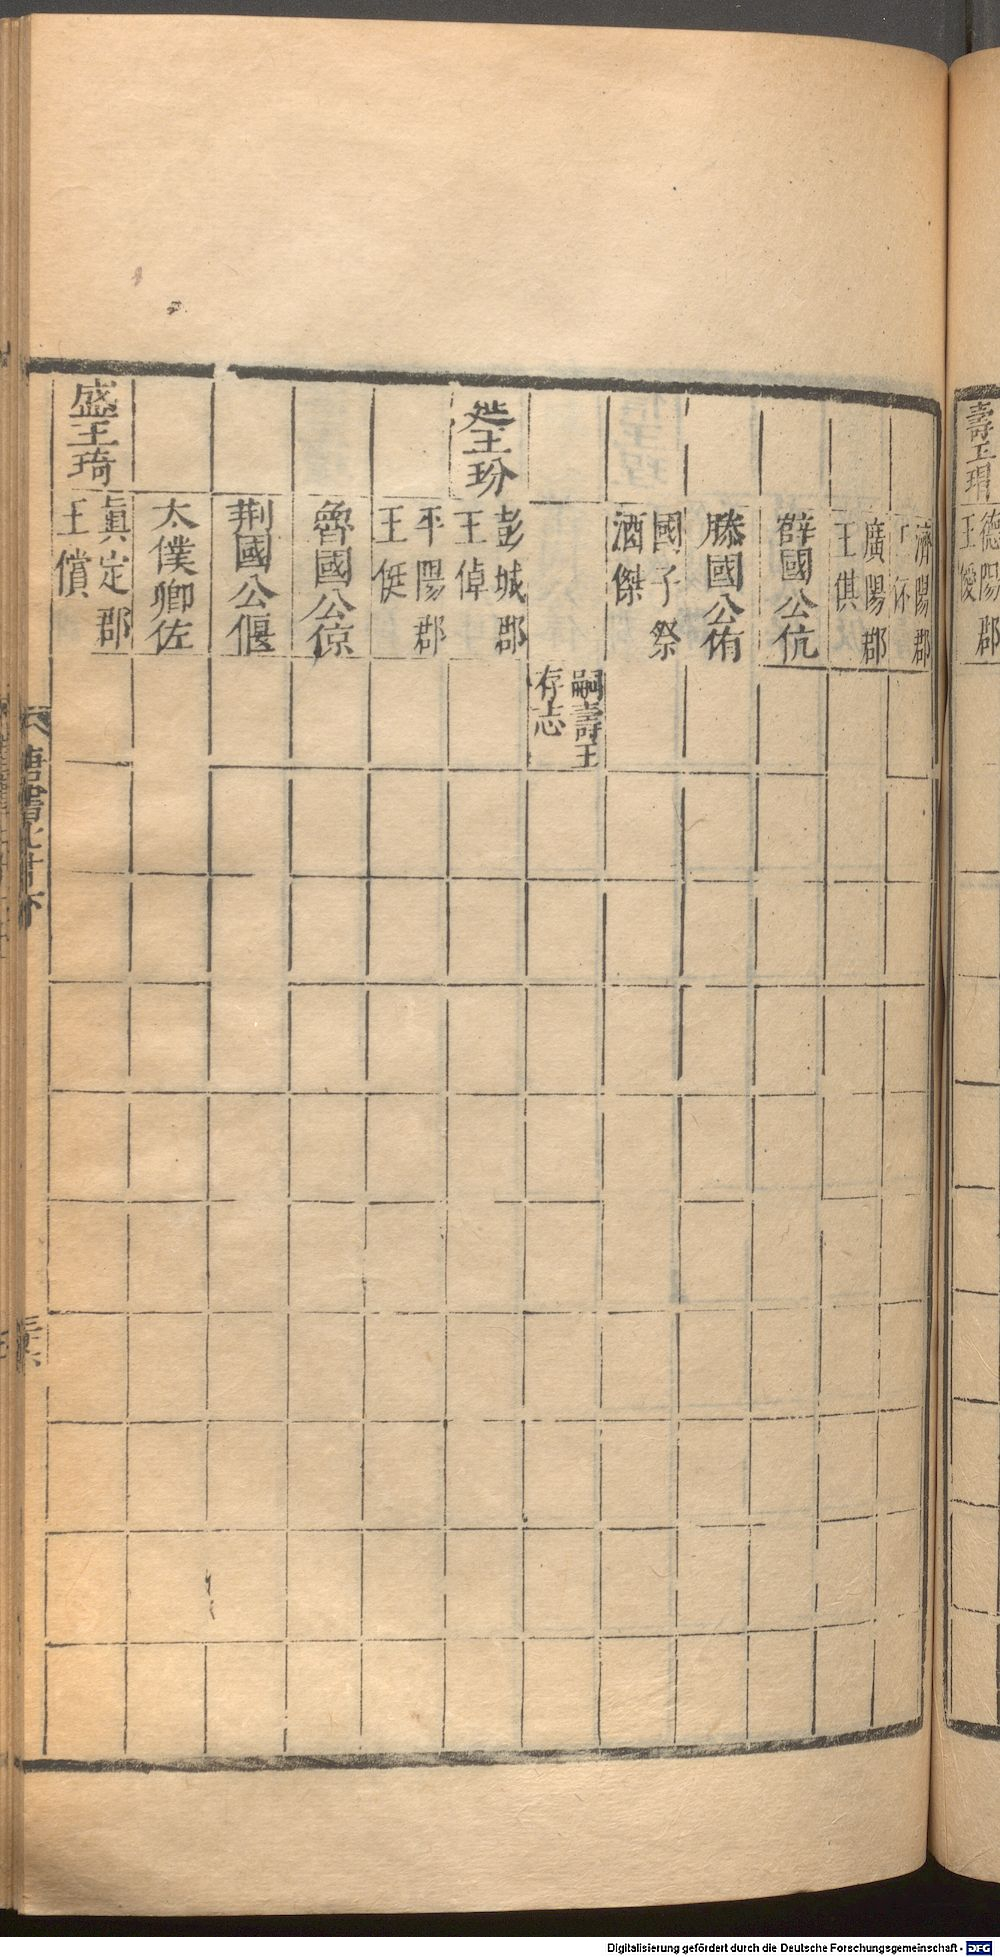 壽王瑁
德陽郡
王僾
濟陽郡
王伓
廣陽郡
王倛
薛國公伉
滕國公侑
國子祭
酒傑
嗣壽王
存志
延王玢
彭城郡
王倬
平陽郡
王侹
魯國公倞
荆國公偃
太僕卿佐
盛王琦
眞定郡
王償
Digitalisierung gefördert durch die Deutsche Forschungsgemeinschaft - DFG